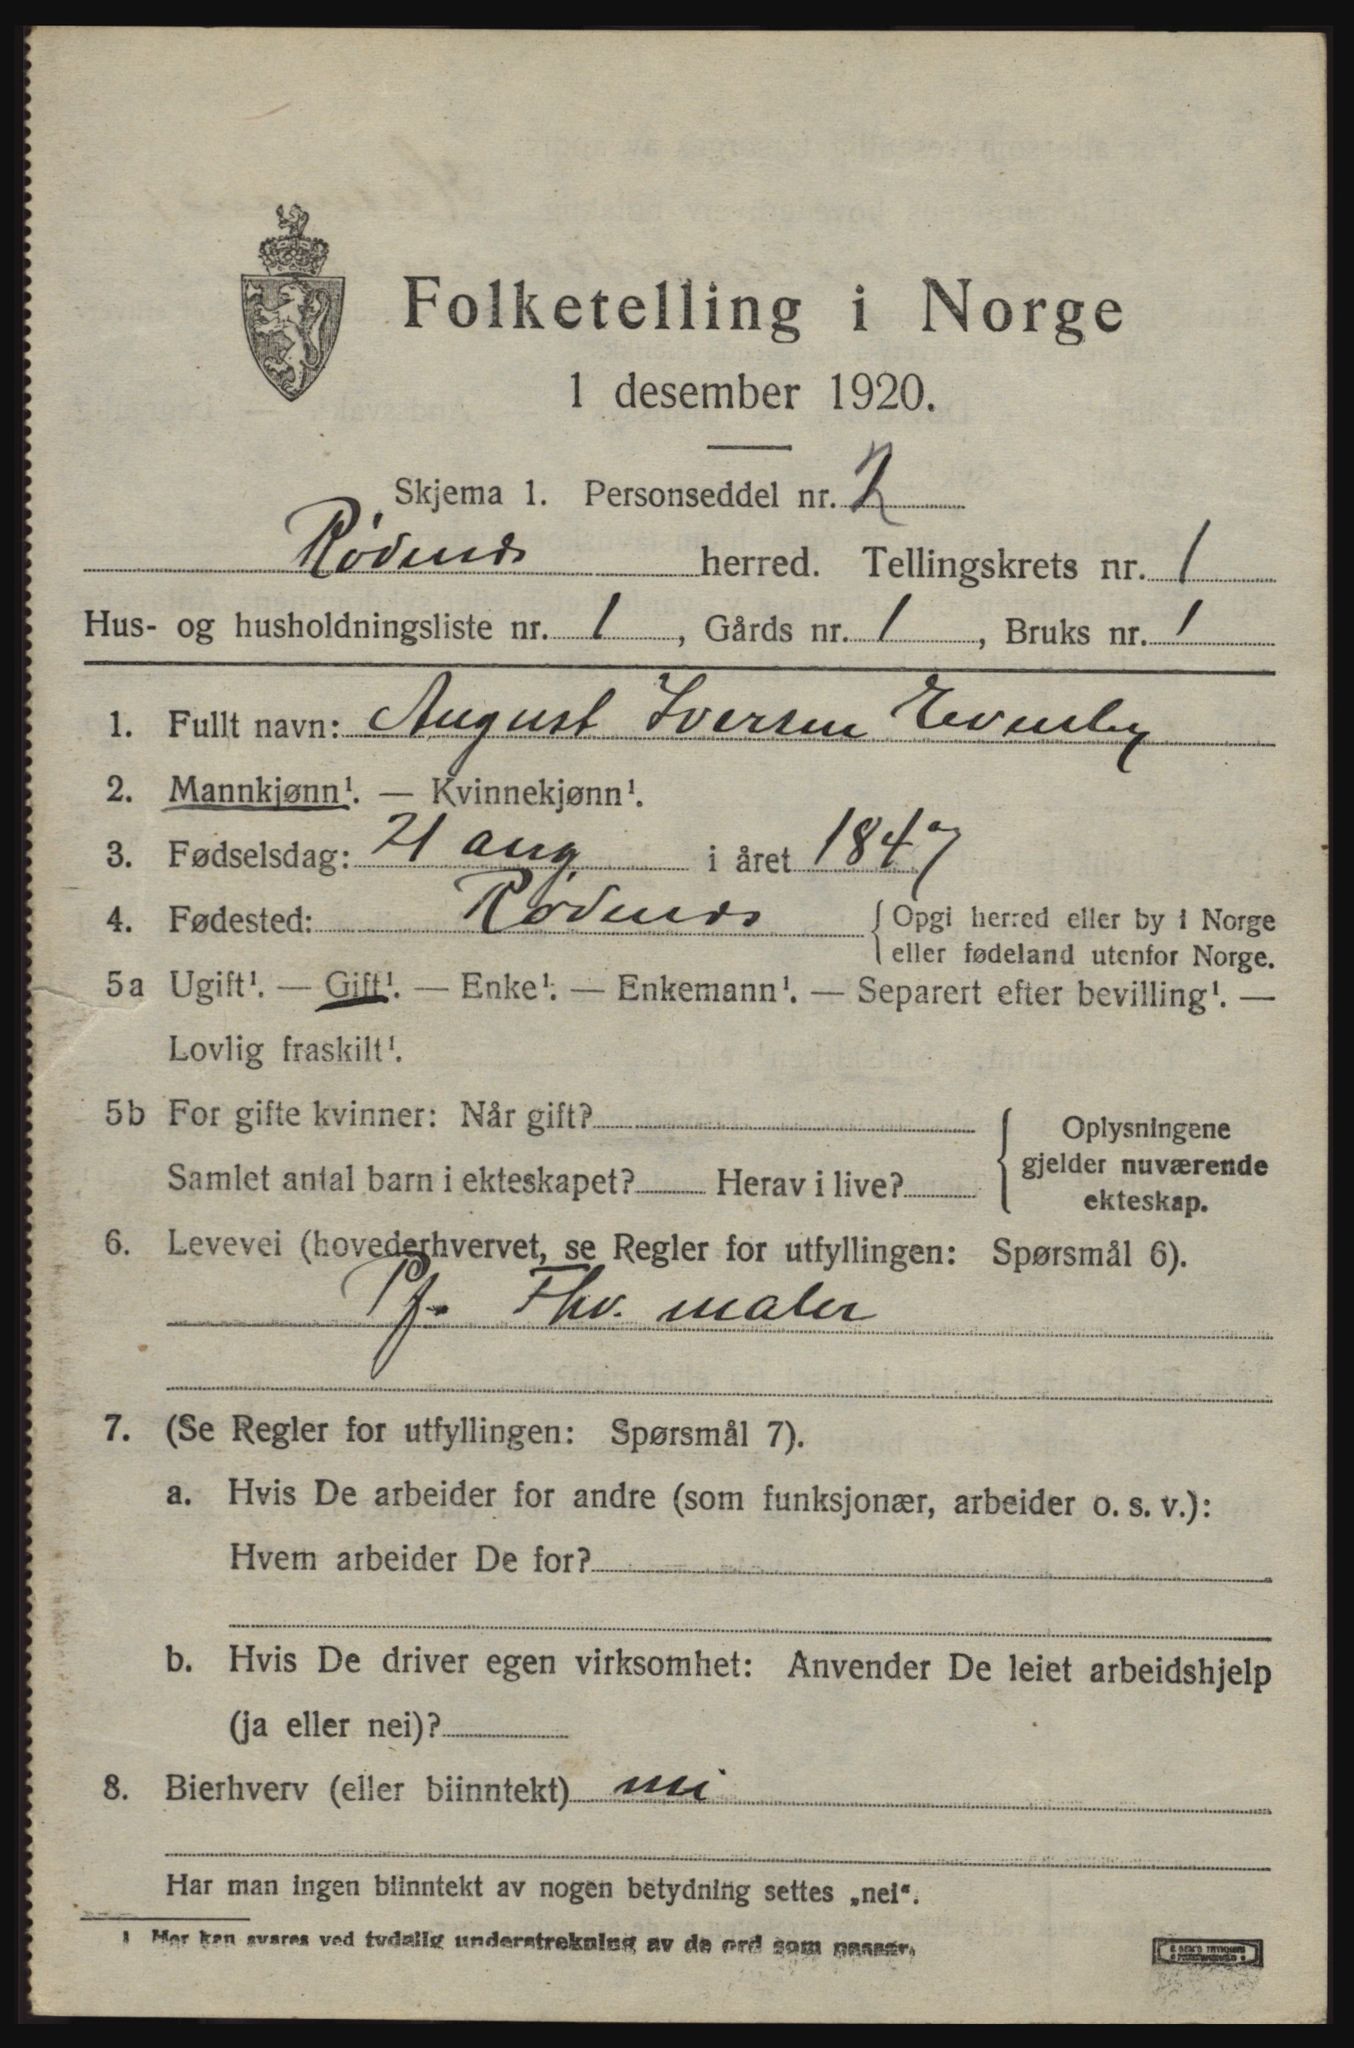 Folketelling i Norge
1 desember 1920.
Skjema 1. Personseddel nr. 2
Rødenes herred. Tellingskrets nr. 1
Hus- og husholdningsliste nr. 1, Gårds nr. 1, Bruks nr. 1
1. Fullt navn: August Iversen Evenby
2. Mannkjønn¹. — Kvinnekjønn¹.
3. Fødselsdag: 21 aug i året 1847
4. Fødested: Rødenes { Opgi herred eller by i Norge
eller fødeland utenfor Norge.
5a Ugift¹. — Gift¹. — Enke¹. — Enkemann¹. — Separert efter bevilling¹. —
Lovlig fraskilt¹.
5b For gifte kvinner: Når gift?
Samlet antal barn i ekteskapet? Herav i live?
{ Oplysningene
gjelder nuværende
ekteskap.
6. Levevei (hovederhvervet, se Regler for utfyllingen: Spørsmål 6).
Pf. Fhv. maler
7. (Se Regler for utfyllingen: Spørsmål 7).
a. Hvis De arbeider for andre (som funksjonær, arbeider o. s. v.):
Hvem arbeider De for?
b. Hvis De driver egen virksomhet: Anvender De leiet arbeidshjelp
(ja eller nei)?
8. Bierhverv (eller biinntekt) nei
Har man ingen biinntekt av nogen betydning settes „nei“.
1 Her kan svares ved tydelig understrekning av de ord som passer.